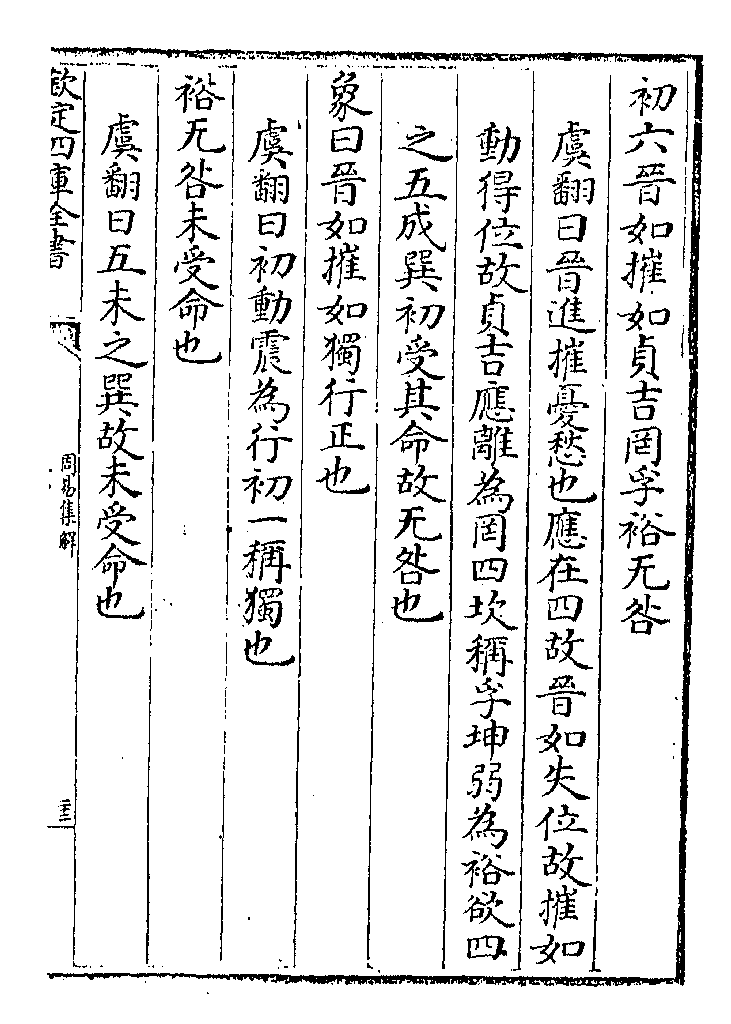 初六晉如摧如貞吉罔孚裕无咎
虞翻曰晉進摧憂愁也應在四故晉如失位故摧如
動得位故貞吉應離為罔四坎稱孚坤弱為裕欲四
之五成巽初受其命故无咎也
象曰晉如摧如獨行正也
虞翻曰初動震為行初一稱獨也
裕无咎未受命也
虞翻曰五未之巽故未受命也
欽定四庫全書
周易集解